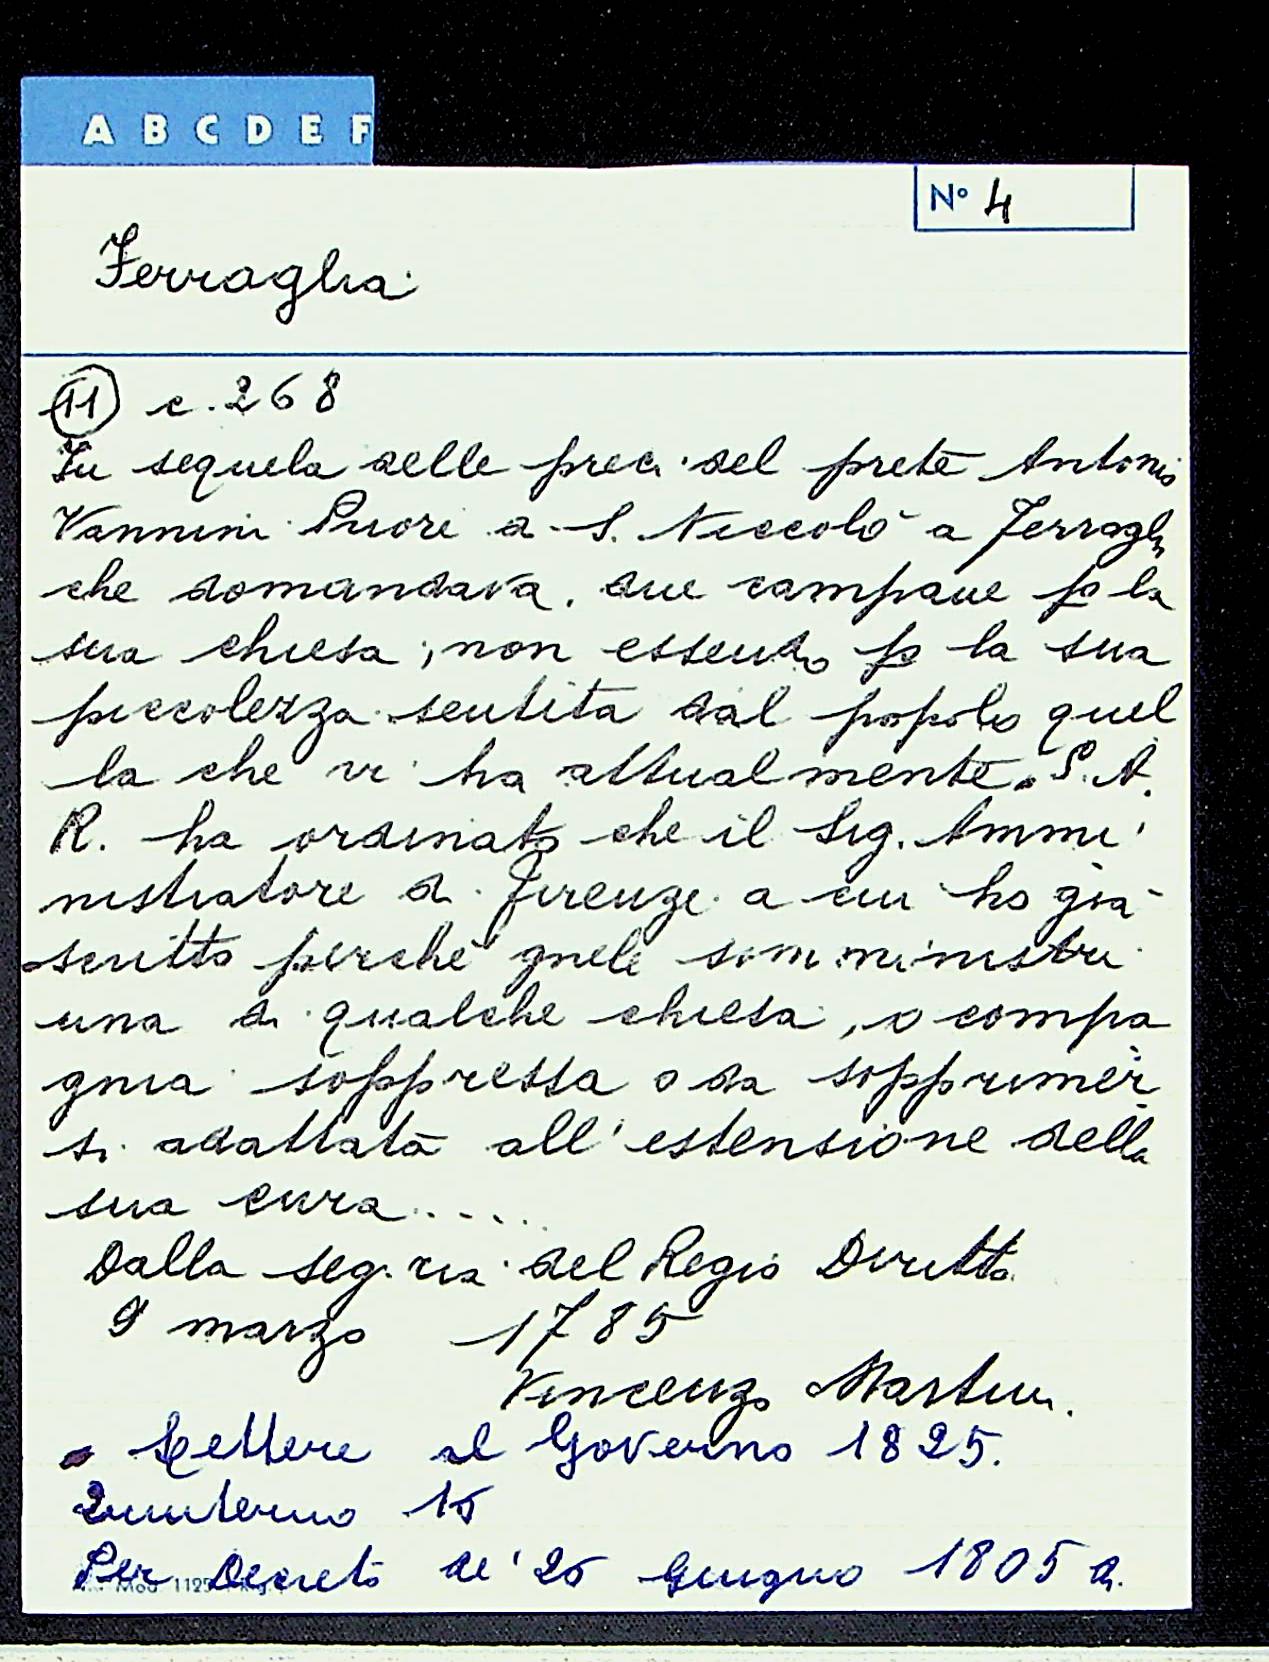 A B C D E F
N° 4
Ferraglia
11 c. 268
In sequela delle preci del prete Antonio
Vannini Priore a S. Niccolò a Ferragli
che domandava due campane p la
sua chiesa, non essendo p la sua
piccolezza sentita dal popolo quel
la che vi ha attualmente. S. A.
R. ha ordinato che il Sig. Ammi
nistratore di Firenze a cui ho già
scritto perché gnele somministri
una di qualche chiesa, o compa
gnia soppressa o da sopprimer
si adattata all'estensione della
sua cura.....
Dalla seg.ria del Regio Diritto
9 marzo 1785
Vincenzo Martini.
Lettere al Governo 1825.
Quinterno 15
Per Decreto de' 25 Giugno 1805 di